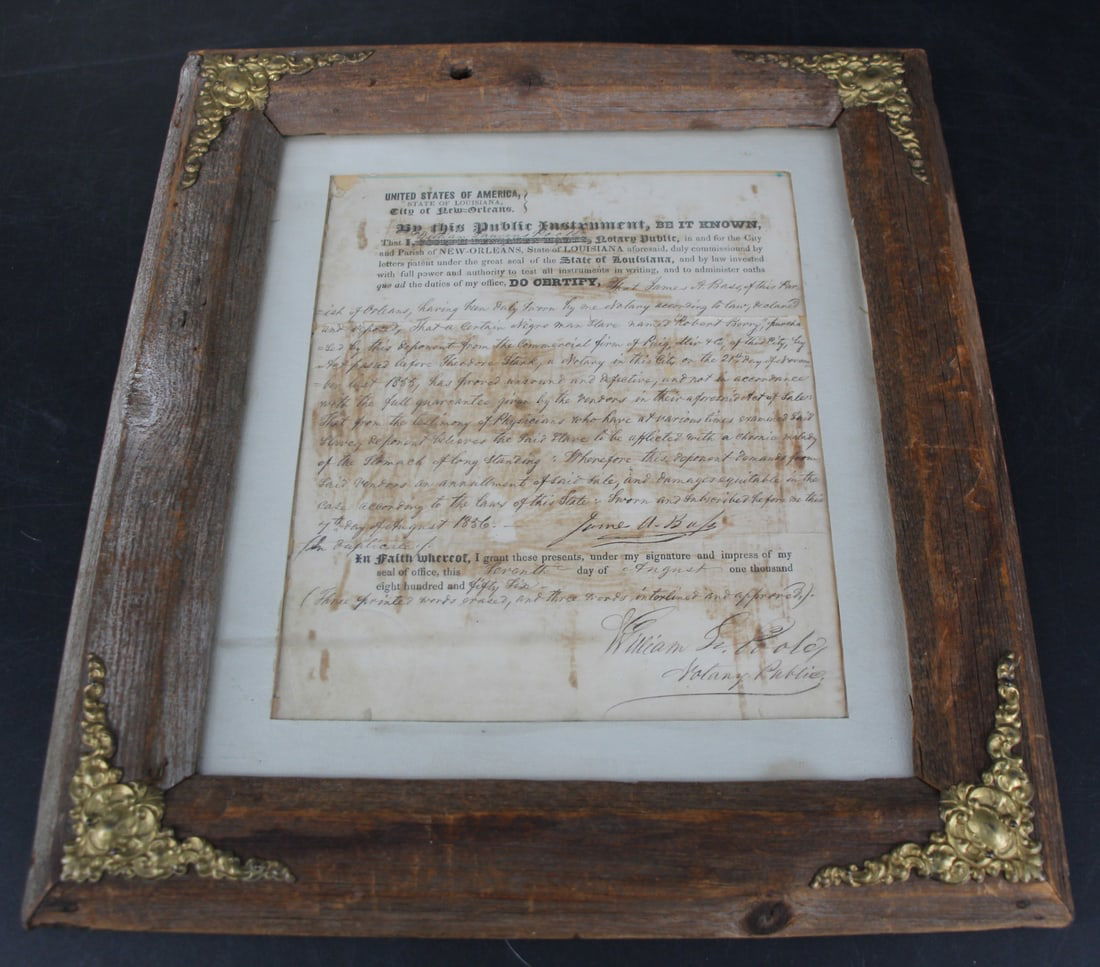 UNITED STATES OF AMERICA,
STATE OF LOUISIANA,
City of New-Orleans.
By this Public Instrument, BE IT KNOWN,
That I, Notary Public, in and for the City
and Parish of NEW-ORLEANS, State of LOUISIANA aforesaid, duly commissioned by
letters patent under the great seal of the State of Louisiana, and by law invested
with full power and authority to test all instruments in writing, and to administer oaths
quo ad the duties of my office, DO CERTIFY, That James A. Bass, of this Par
=ish of Orleans, having been duly Sworn by me Notary according to law, declared
and deposed, That a Certain Negro man Slave named "Robert Berry," purcha
=sed by this deponent from the Commercial firm of Puig, & Co, of this City, by
Act passed before Theodore Stark, a Notary in this City on the 21st day of Novem
=ber last 1855, has proved unsound and defective, and not in accordance
with the full guarantee given by the vendors in their aforesaid Act of Sale:
That from the testimony of Physicians who have at various times examined Said
Slave, deponent believes the Said Slave to be afflicted with a chronic malady
of the Stomach of long Standing: Wherefore this deponent demands from
Said vendors an annullment of Said Sale, and damages equitable in the
case according to the laws of this State: Sworn and Subscribed before me this
7th day of August 1856.
James A. Bass
In duplicate
In Faith whereof, I grant these presents, under my signature and impress of my
seal of office, this Seventh day of August one thousand
eight hundred and fifty Six
(Three printed words erased, and three words interlined and approved).
William
Notary Public